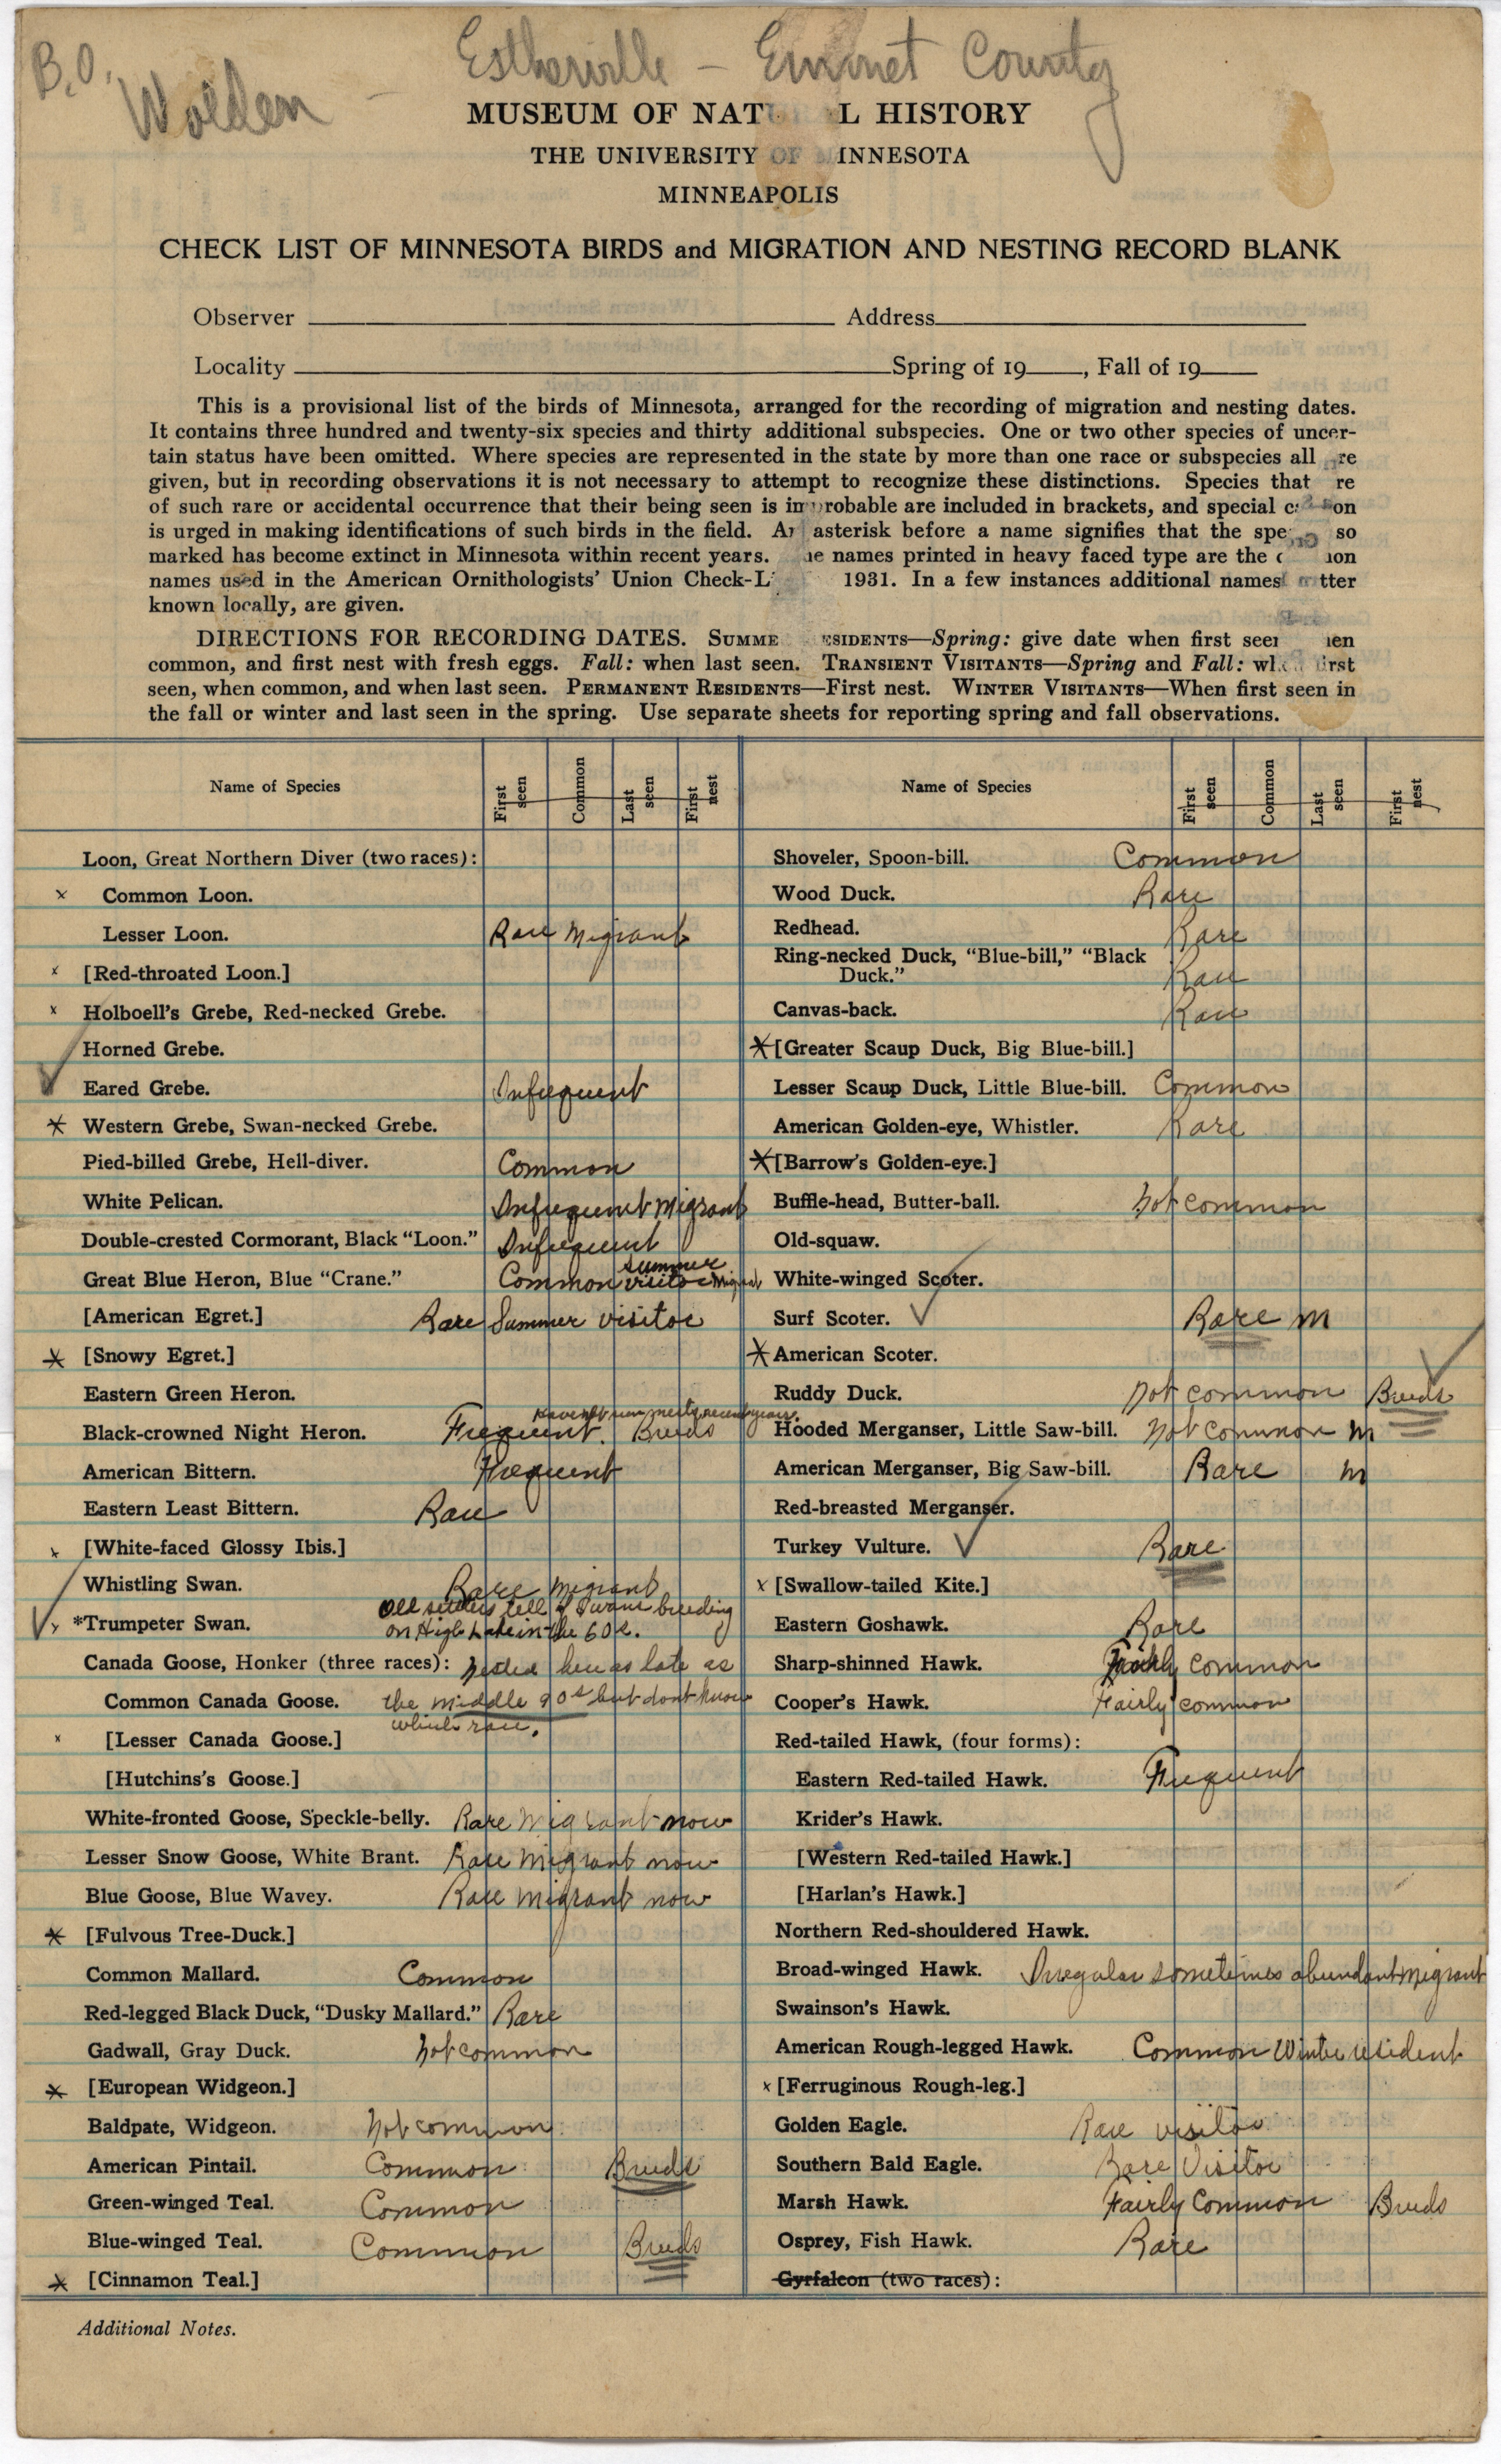 B.O. Wolden - Estherville - Emmet County
MUSEUM OF NAT L HISTORY
THE UNIVERSITY OF MINNESOTA
MINNEAPOLIS
CHECK LIST OF MINNESOTA BIRDS and MIGRATION AND NESTING RECORD BLANK
Observer Address
Locality Spring of 19 , Fall of 19
This is a provisional list of the birds of Minnesota, arranged for the recording of migration and nesting dates.
It contains three hundred and twenty-six species and thirty additional subspecies. One or two other species of uncer-
tain status have been omitted. Where species are represented in the state by more than one race or subspecies all re
given, but in recording observations it is not necessary to attempt to recognize these distinctions. Species that re
of such rare or accidental occurrence that their being seen is improbable are included in brackets, and special c on
is urged in making identifications of such birds in the field. An asterisk before a name signifies that the spe so
marked has become extinct in Minnesota within recent years. e names printed in heavy faced type are the c ion
names used in the American Ornithologists' Union Check-L 1931. In a few instances additional names tter
known locally, are given.
DIRECTIONS FOR RECORDING DATES. SUMME ESIDENTS—Spring: give date when first seen en
common, and first nest with fresh eggs. Fall: when last seen. TRANSIENT VISITANTS—Spring and Fall: wh first
seen, when common, and when last seen. PERMANENT RESIDENTS—First nest. WINTER VISITANTS—When first seen in
the fall or winter and last seen in the spring. Use separate sheets for reporting spring and fall observations.
Name of Species First seen Common Last seen First nest
Loon, Great Northern Diver (two races):
x Common Loon.
Lesser Loon. Rare Migrant
x [Red-throated Loon.]
x Holboell's Grebe, Red-necked Grebe.
Horned Grebe.
Eared Grebe. Infrequent
* Western Grebe, Swan-necked Grebe.
Pied-billed Grebe, Hell-diver. Common
White Pelican. Infrequent Migrant
Double-crested Cormorant, Black "Loon." Infrequent
Great Blue Heron, Blue "Crane." Common summer visitor Migrant
[American Egret.] Rare Summer visitor
* [Snowy Egret.]
Eastern Green Heron.
Black-crowned Night Heron. Frequent. Breeds recent years.
American Bittern. Frequent
Eastern Least Bittern. Rare
x [White-faced Glossy Ibis.]
Whistling Swan. Rare Migrant
x *Trumpeter Swan. Old settlers tell of Swans breeding
on High Lake in the 60s.
Canada Goose, Honker (three races): Nested here as late as
Common Canada Goose. the middle 90s but dont know
which race.
x [Lesser Canada Goose.]
[Hutchins's Goose.]
White-fronted Goose, Speckle-belly. Rare Migrant now
Lesser Snow Goose, White Brant. Rare Migrant now
Blue Goose, Blue Wavey. Rare Migrant now
* [Fulvous Tree-Duck.]
Common Mallard. Common
Red-legged Black Duck, "Dusky Mallard." Rare
Gadwall, Gray Duck. Not common
* [European Widgeon.]
Baldpate, Widgeon. Not common
American Pintail. Common Breeds
Green-winged Teal. Common
Blue-winged Teal. Common Breeds
* [Cinnamon Teal.]
Name of Species First seen Common Last seen First nest
Shoveler, Spoon-bill. Common
Wood Duck. Rare
Redhead. Rare
Ring-necked Duck, "Blue-bill," "Black
Duck." Rare
Canvas-back. Rare
* [Greater Scaup Duck, Big Blue-bill.]
Lesser Scaup Duck, Little Blue-bill. Common
American Golden-eye, Whistler. Rare
* [Barrow's Golden-eye.]
Buffle-head, Butter-ball. Not common
Old-squaw.
White-winged Scoter.
Surf Scoter. Rare M
* American Scoter.
Ruddy Duck. Not common Breeds
Hooded Merganser, Little Saw-bill. Not common M
American Merganser, Big Saw-bill. Rare M
Red-breasted Merganser.
Turkey Vulture. Rare
x [Swallow-tailed Kite.]
Eastern Goshawk. Rare
Sharp-shinned Hawk. Fairly common
Cooper's Hawk. Fairly common
Red-tailed Hawk, (four forms):
Eastern Red-tailed Hawk. Frequent
Krider's Hawk.
[Western Red-tailed Hawk.]
[Harlan's Hawk.]
Northern Red-shouldered Hawk.
Broad-winged Hawk. Irregular sometimes abundant migrant
Swainson's Hawk.
American Rough-legged Hawk. Common Winter resident
x [Ferruginous Rough-leg.]
Golden Eagle. Rare visitor
Southern Bald Eagle. Rare Visitor
Marsh Hawk. Fairly Common Breeds
Osprey, Fish Hawk. Rare
Gyrfalcon (two races):
Additional Notes.